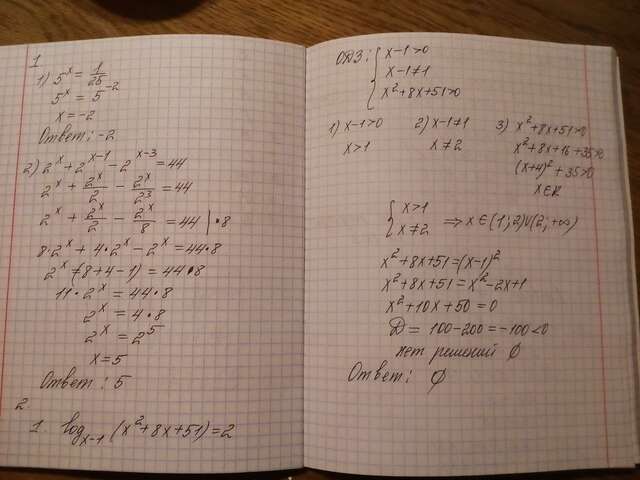 1
1) 5^x = 1/25
5^x = 5^-2
x = -2
Ответ: -2
2) 2^x + 2^(x-1) - 2^(x-3) = 44
2^x + 2^x/2 - 2^x/2^3 = 44
2^x + 2^x/2 - 2^x/8 = 44 | • 8
8 • 2^x + 4 • 2^x - 2^x = 44 • 8
2^x • (8 + 4 - 1) = 44 • 8
11 • 2^x = 44 • 8
2^x = 4 • 8
2^x = 2^5
x = 5
Ответ: 5
2
1 log_(x-1) (x^2 + 8x + 51) = 2
ОДЗ: { x - 1 > 0
x - 1 ≠ 1
x^2 + 8x + 51 > 0
1) x - 1 > 0
x > 1
2) x - 1 ≠ 1
x ≠ 2
3) x^2 + 8x + 51 > 0
x^2 + 8x + 16 + 35 > 0
(x + 4)^2 + 35 > 0
x ∈ R
{ x > 1
x ≠ 2 ⇒ x ∈ (1; 2) ∪ (2; +∞)
x^2 + 8x + 51 = (x - 1)^2
x^2 + 8x + 51 = x^2 - 2x + 1
x^2 + 10x + 50 = 0
D = 100 - 200 = -100 < 0
нет решений ∅
Ответ: ∅